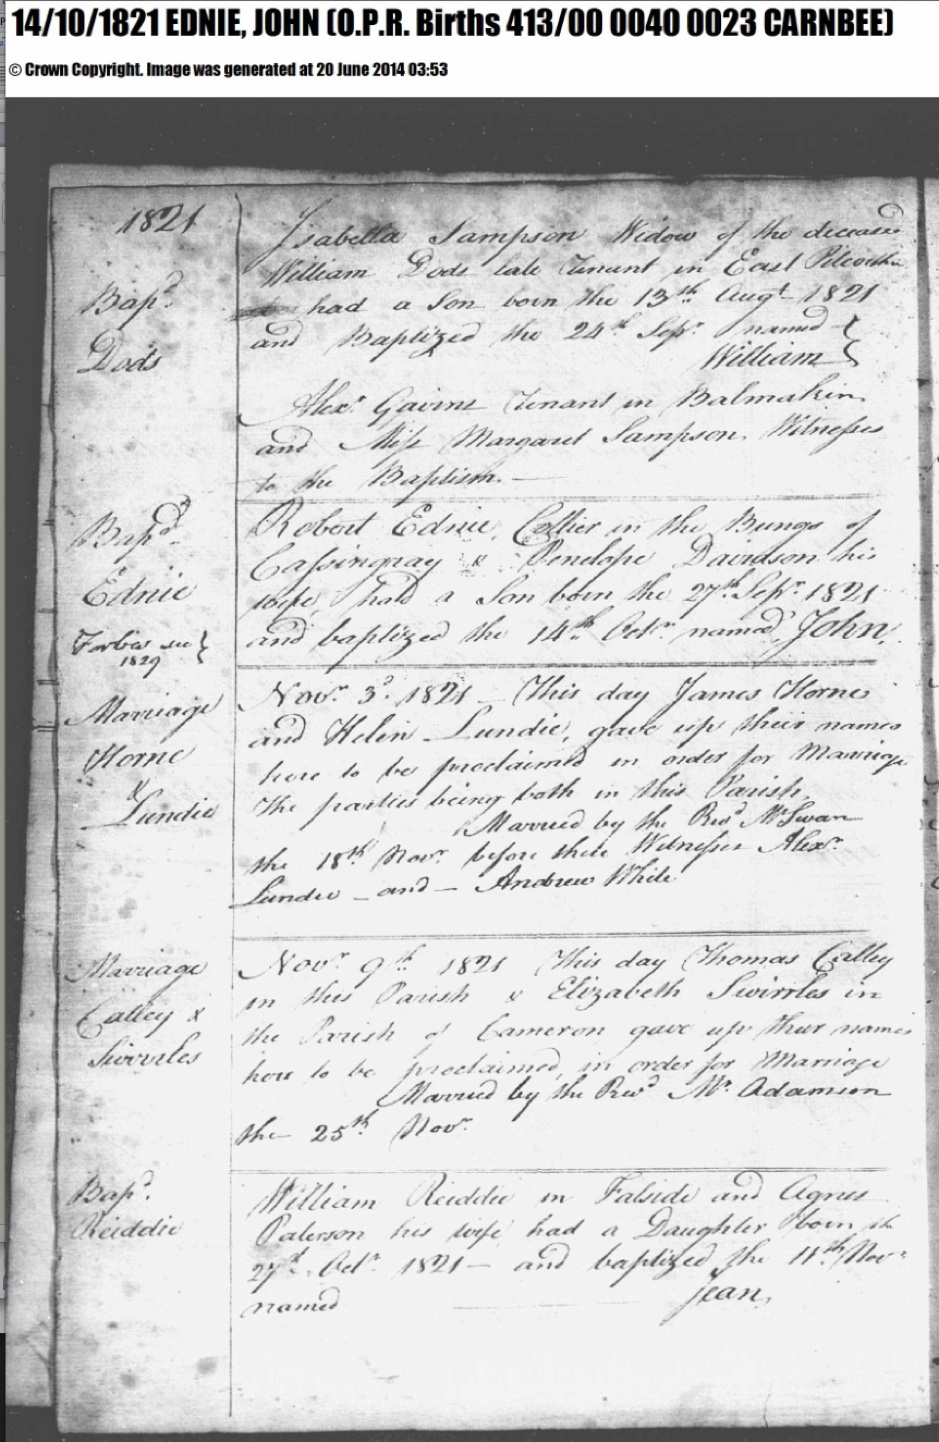 14/10/1821 EDNIE, JOHN (O.P.R. Births 413/00 0040 0023 CARNBEE)
© Crown Copyright. Image was generated at 20 June 2014 03:53
1821
Isabella Sampson Widow of the decease
William Dods late Tenant in East
had a Son born the 13th Augt 1821
and Baptized the 24th Sepr. named
William
Bapd.
Dods
Alexr. Gavine Tenant in Balmakin
and Miss Margaret Sampson Witnesses
to the Baptism.
Bapd.
Ednie
Forbes see
1829
Robert Ednie, Collier in the Bungs of
Cassingray & Penelope Davidson his
wife, had a Son born the 27th Sepr. 1821
and baptized the 14th Octr. named John.
Marriage
Horne
&
Lundie
Novr. 3d. 1821 – This day James Horne
and Helen Lundie, gave up their names
here to be proclaimed in order for Marriage
The parties being both in this Parish.
Married by the Revd Mr Swan
the 18th Novr. before these Witnesses Alexr.
Lundie – and – Andrew White
Marriage
Calley &
Swirrles
Novr. 9th 1821 This day Thomas Calley
in this Parish & Elizabeth Swirrles in
the Parish of Cameron gave up their names
here to be proclaimed, in order for Marriage
Married by the Revd Mr. Adamson
the 25th Novr.
Bapd.
Reiddie
William Reiddie in Falside and Agnes
Paterson his wife had a Daughter born the
27th Octr. 1821 – and baptized the 11th Novr
named Jean.